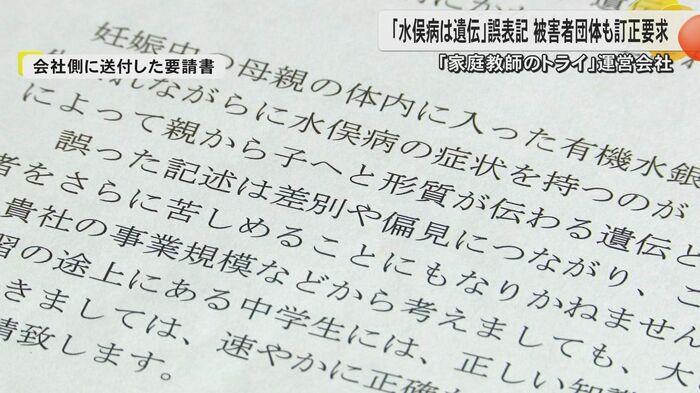 「水俣病は遺伝」誤表記 被害者団体も訂正要求
「家庭教師のトライ」運営会社
会社側に送付した要請書
妊娠中の母親の体内に入った有機水銀
れながらに水俣病の症状を持つのが
によって親から子へと形質が伝わる遺伝と
誤った記述は差別や偏見につながり、こ
者をさらに苦しめることにもなりかねません
貴社の事業規模などから考えましても、大
習の途上にある中学生には、正しい知識
きましては、速やかに正確
請致します。